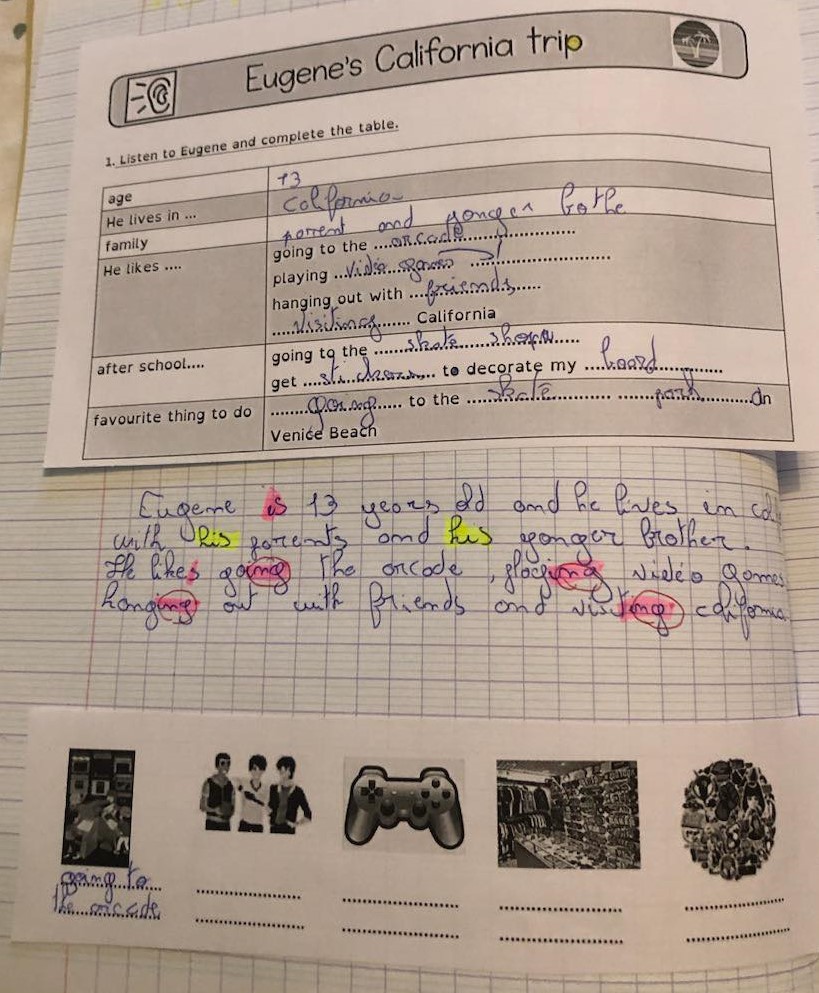 Eugene's California trip
1. Listen to Eugene and complete the table.
age 13
He lives in ... California
family parent and yonger bothe
He likes .... going to the ...arcade..................
playing ...vidéo games...................
hanging out with ...friends......
....visiting...... California
after school.... going to the ......skate shope.....
get ...stickers.... to decorate my ....board...........
favourite thing to do .......going..... to the .....skate........ ......park.........in
Venice Beach
Eugene is 13 years old and he lives in cal
with his parents and his yonger brother.
He likes going the arcade, playing vidéo games
hanging out with friends and visiting california
going to
the arcade